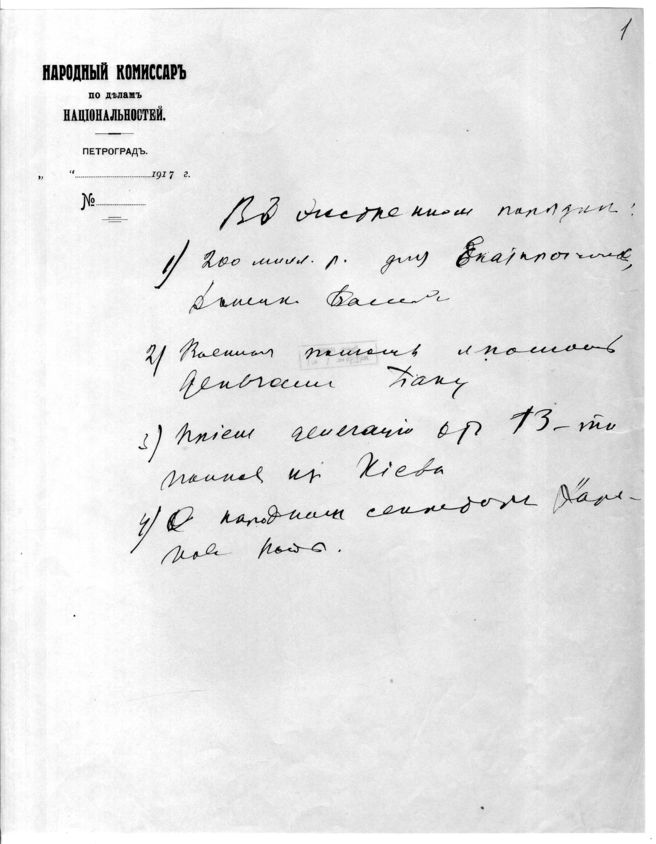 1
НАРОДНЫЙ КОМИССАРЪ
по дѣламъ
НАЦІОНАЛЬНОСТЕЙ.
ПЕТРОГРАДЪ.
„ “ 1917 г.
№
Въ экстренном порядки:
1) 200 милл. р. для
2) Военная помощь и помощь
деньгами Баку
3) Прием делегацiю от 13-ти
полков из Кiева
4) О народном секретаре